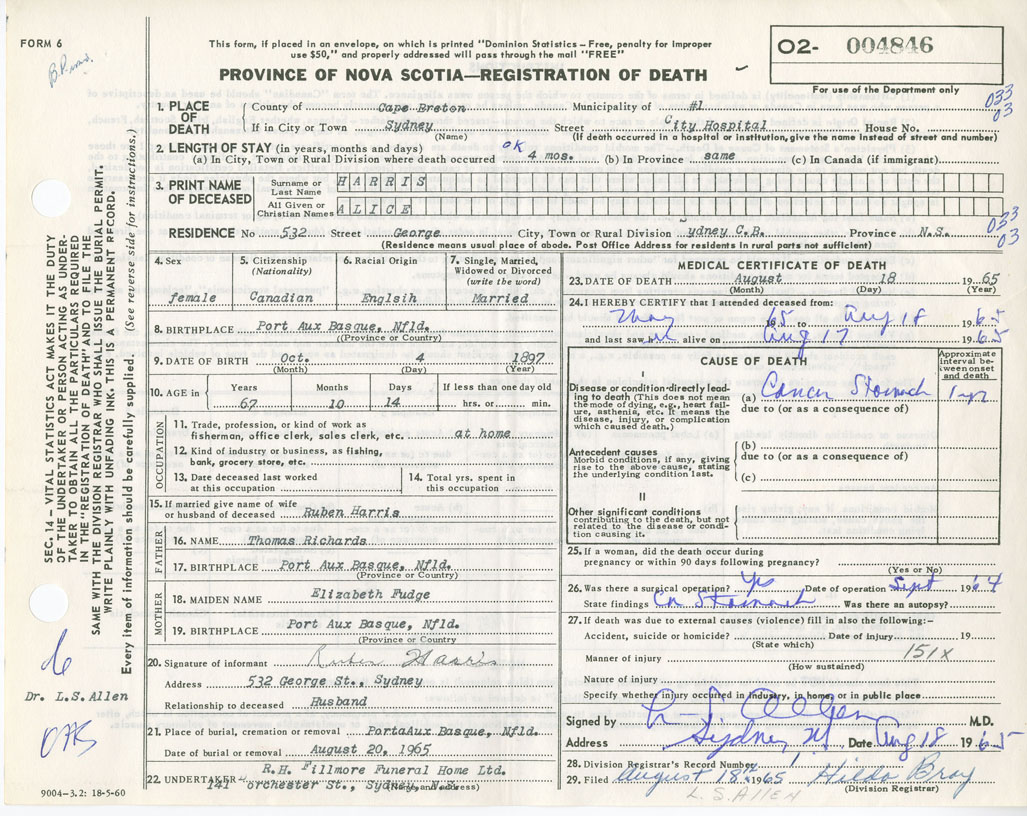 FORM 6
This form, if placed in an envelope, on which is printed "Dominion Statistics – Free, penalty for improper
use $50," and properly addressed will pass through the mail "FREE"
O2- 004846
PROVINCE OF NOVA SCOTIA—REGISTRATION OF DEATH
For use of the Department only
1. PLACE OF DEATH
County of Cape Breton Municipality of #1
033
03
If in City or Town Sydney Street City Hospital House No.
(Name) (If death occurred in a hospital or institution, give the name instead of street and number)
2. LENGTH OF STAY (in years, months and days) OK
(a) In City, Town or Rural Division where death occurred 4 mos. (b) In Province same (c) In Canada (if immigrant)
3. PRINT NAME OF DECEASED
Surname or Last Name HARRIS
All Given or Christian Names ALICE
RESIDENCE No 532 Street George City, Town or Rural Division ydney C.B. Province N.S.
033
03
(Residence means usual place of abode. Post Office Address for residents in rural parts not sufficient)
4. Sex
female
5. Citizenship
(Nationality)
Canadian
6. Racial Origin
Englsih
7. Single, Married,
Widowed or Divorced
(write the word)
Married
8. BIRTHPLACE Port Aux Basque, Nfld.
((Province or Country)
9. DATE OF BIRTH Oct. 4 1897
(Month) (Day) (Year)
10. AGE in
Years Months Days If less than one day old
67 10 14 hrs. or min.
OCCUPATION
11. Trade, profession, or kind of work as
fisherman, office clerk, sales clerk, etc. at home
12. Kind of industry or business, as fishing,
bank, grocery store, etc.
13. Date deceased last worked
at this occupation
14. Total yrs. spent in
this occupation
15. If married give name of wife
or husband of deceased Ruben Harris
FATHER
16. NAME Thomas Richards
17. BIRTHPLACE Port Aux Basque, Nfld.
(Province or Country)
MOTHER
18. MAIDEN NAME Elizabeth Fudge
19. BIRTHPLACE Port Aux Basque, Nfld.
(Province or Country
20. Signature of informant Ruben Harris
Address 532 George St., Sydney
Relationship to deceased Husband
21. Place of burial, cremation or removal PortaAux Basque, Nfld.
Date of burial or removal August 20, 1965
22. UNDERTAKER R.H. Fillmore Funeral Home Ltd.
141 orchester St., Sydney, N.S.
(Name and address)
9004-3.2: 18-5-60
MEDICAL CERTIFICATE OF DEATH
23. DATE OF DEATH August 18 1965
(Month) (Day) (Year)
24. I HEREBY CERTIFY that I attended deceased from:
May 1965 to Aug 18 1965
and last saw alive on Aug 17 1965
CAUSE OF DEATH
Approximate
interval be-
tween onset
and death
I
Disease or condition directly lead-
ing to death (This does not mean
the mode of dying, e.g., heart fail-
ure, asthenia, etc. It means the
disease, injury, or complication
which caused death.)
(a) Cancer Stomach 1 yr
due to (or as a consequence of)
Antecedent causes
Morbid conditions, if any, giving
rise to the above cause, stating
the underlying condition last.
(b)
due to (or as a consequence of)
(c)
II
Other significant conditions
contributing to the death, but not
related to the disease or condi-
tion causing it.
25. If a woman, did the death occur during
pregnancy or within 90 days following pregnancy?
(Yes or No)
26. Was there a surgical operation? Yes Date of operation Sept 1964
State findings Ca Stomach Was there an autopsy?
27. If death was due to external causes (violence) fill in also the following:–
Accident, suicide or homicide? Date of injury 19
(State which)
151X
Manner of injury
(How sustained)
Nature of injury
Specify whether injury occurred in industry, in home, or in public place
Signed by L. S. Allen M.D.
Address Sydney NS Date Aug 18 1965
28. Division Registrar's Record Number 1
29. Filed August 18th 1965 Hilda Bray
(Division Registrar)
L.S. ALLEN
SEC. 14 – VITAL STATISTICS ACT MAKES IT THE DUTY
OF THE UNDERTAKER OR PERSON ACTING AS UNDER-
TAKER TO OBTAIN ALL THE PARTICULARS REQUIRED
IN THE "REGISTRATION OF DEATH" AND TO FILE THE
SAME WITH THE DIVISION REGISTRAR WHO SHALL ISSUE THE BURIAL PERMIT.
WRITE PLAINLY WITH UNFADING INK. THIS IS A PERMANENT RECORD.
Every item of information should be carefully supplied. (See reverse side for instructions.)
6
Dr. L.S. Allen